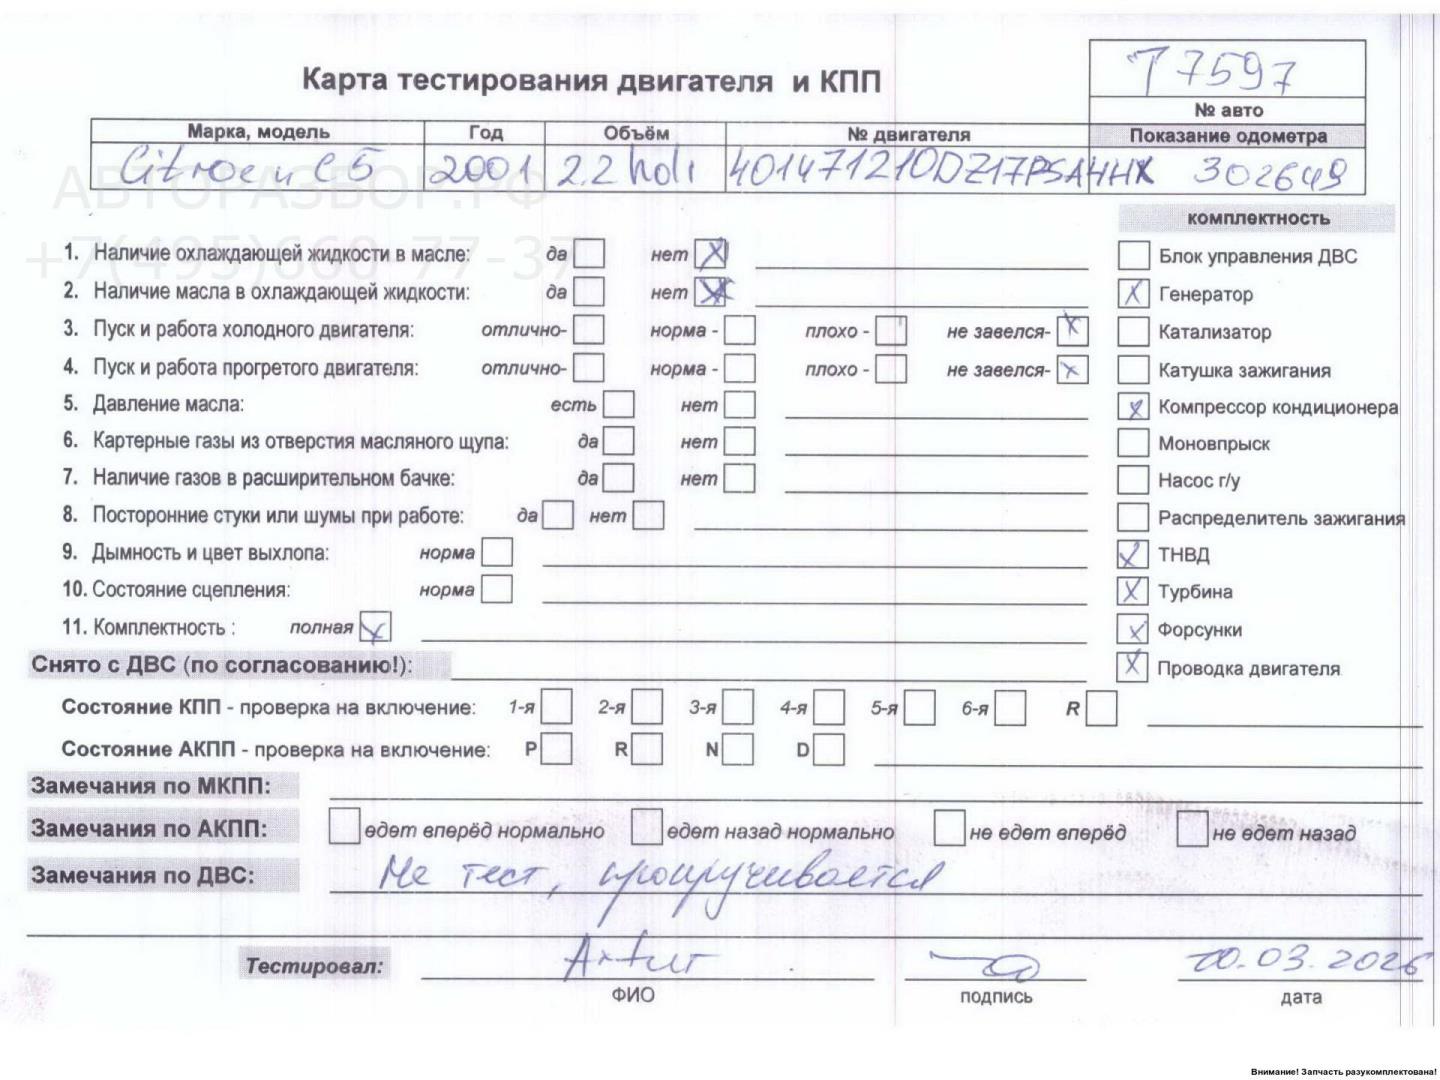 Т7597
Карта тестирования двигателя и КПП
№ авто
Марка, модель Год Объём № двигателя Показание одометра
Citroen C5 2001 2.2 hdi 302649
АВТОРАЗБОР.РФ
+7(495)660-77-37
комплектность
1. Наличие охлаждающей жидкости в масле: да нет X
Блок управления ДВС
2. Наличие масла в охлаждающей жидкости: да нет X
X Генератор
3. Пуск и работа холодного двигателя: отлично- норма - плохо - не завелся- X
Катализатор
4. Пуск и работа прогретого двигателя: отлично- норма - плохо - не завелся- X
Катушка зажигания
5. Давление масла: есть нет
X Компрессор кондиционера
6. Картерные газы из отверстия масляного щупа: да нет
Моновпрыск
7. Наличие газов в расширительном бачке: да нет
Насос г/у
8. Посторонние стуки или шумы при работе: да нет
Распределитель зажигания
9. Дымность и цвет выхлопа: норма
X ТНВД
10. Состояние сцепления: норма
X Турбина
11. Комплектность : полная X
X Форсунки
Снято с ДВС (по согласованию!):
X Проводка двигателя
Состояние КПП - проверка на включение: 1-я 2-я 3-я 4-я 5-я 6-я R
Состояние АКПП - проверка на включение: P R N D
Замечания по МКПП:
Замечания по АКПП: едет вперёд нормально едет назад нормально не едет вперёд не едет назад
Замечания по ДВС: Не тест, прокручивается
Тестировал: Artur 10.03.2026
ФИО подпись дата
Внимание! Запчасть разукомплектована!